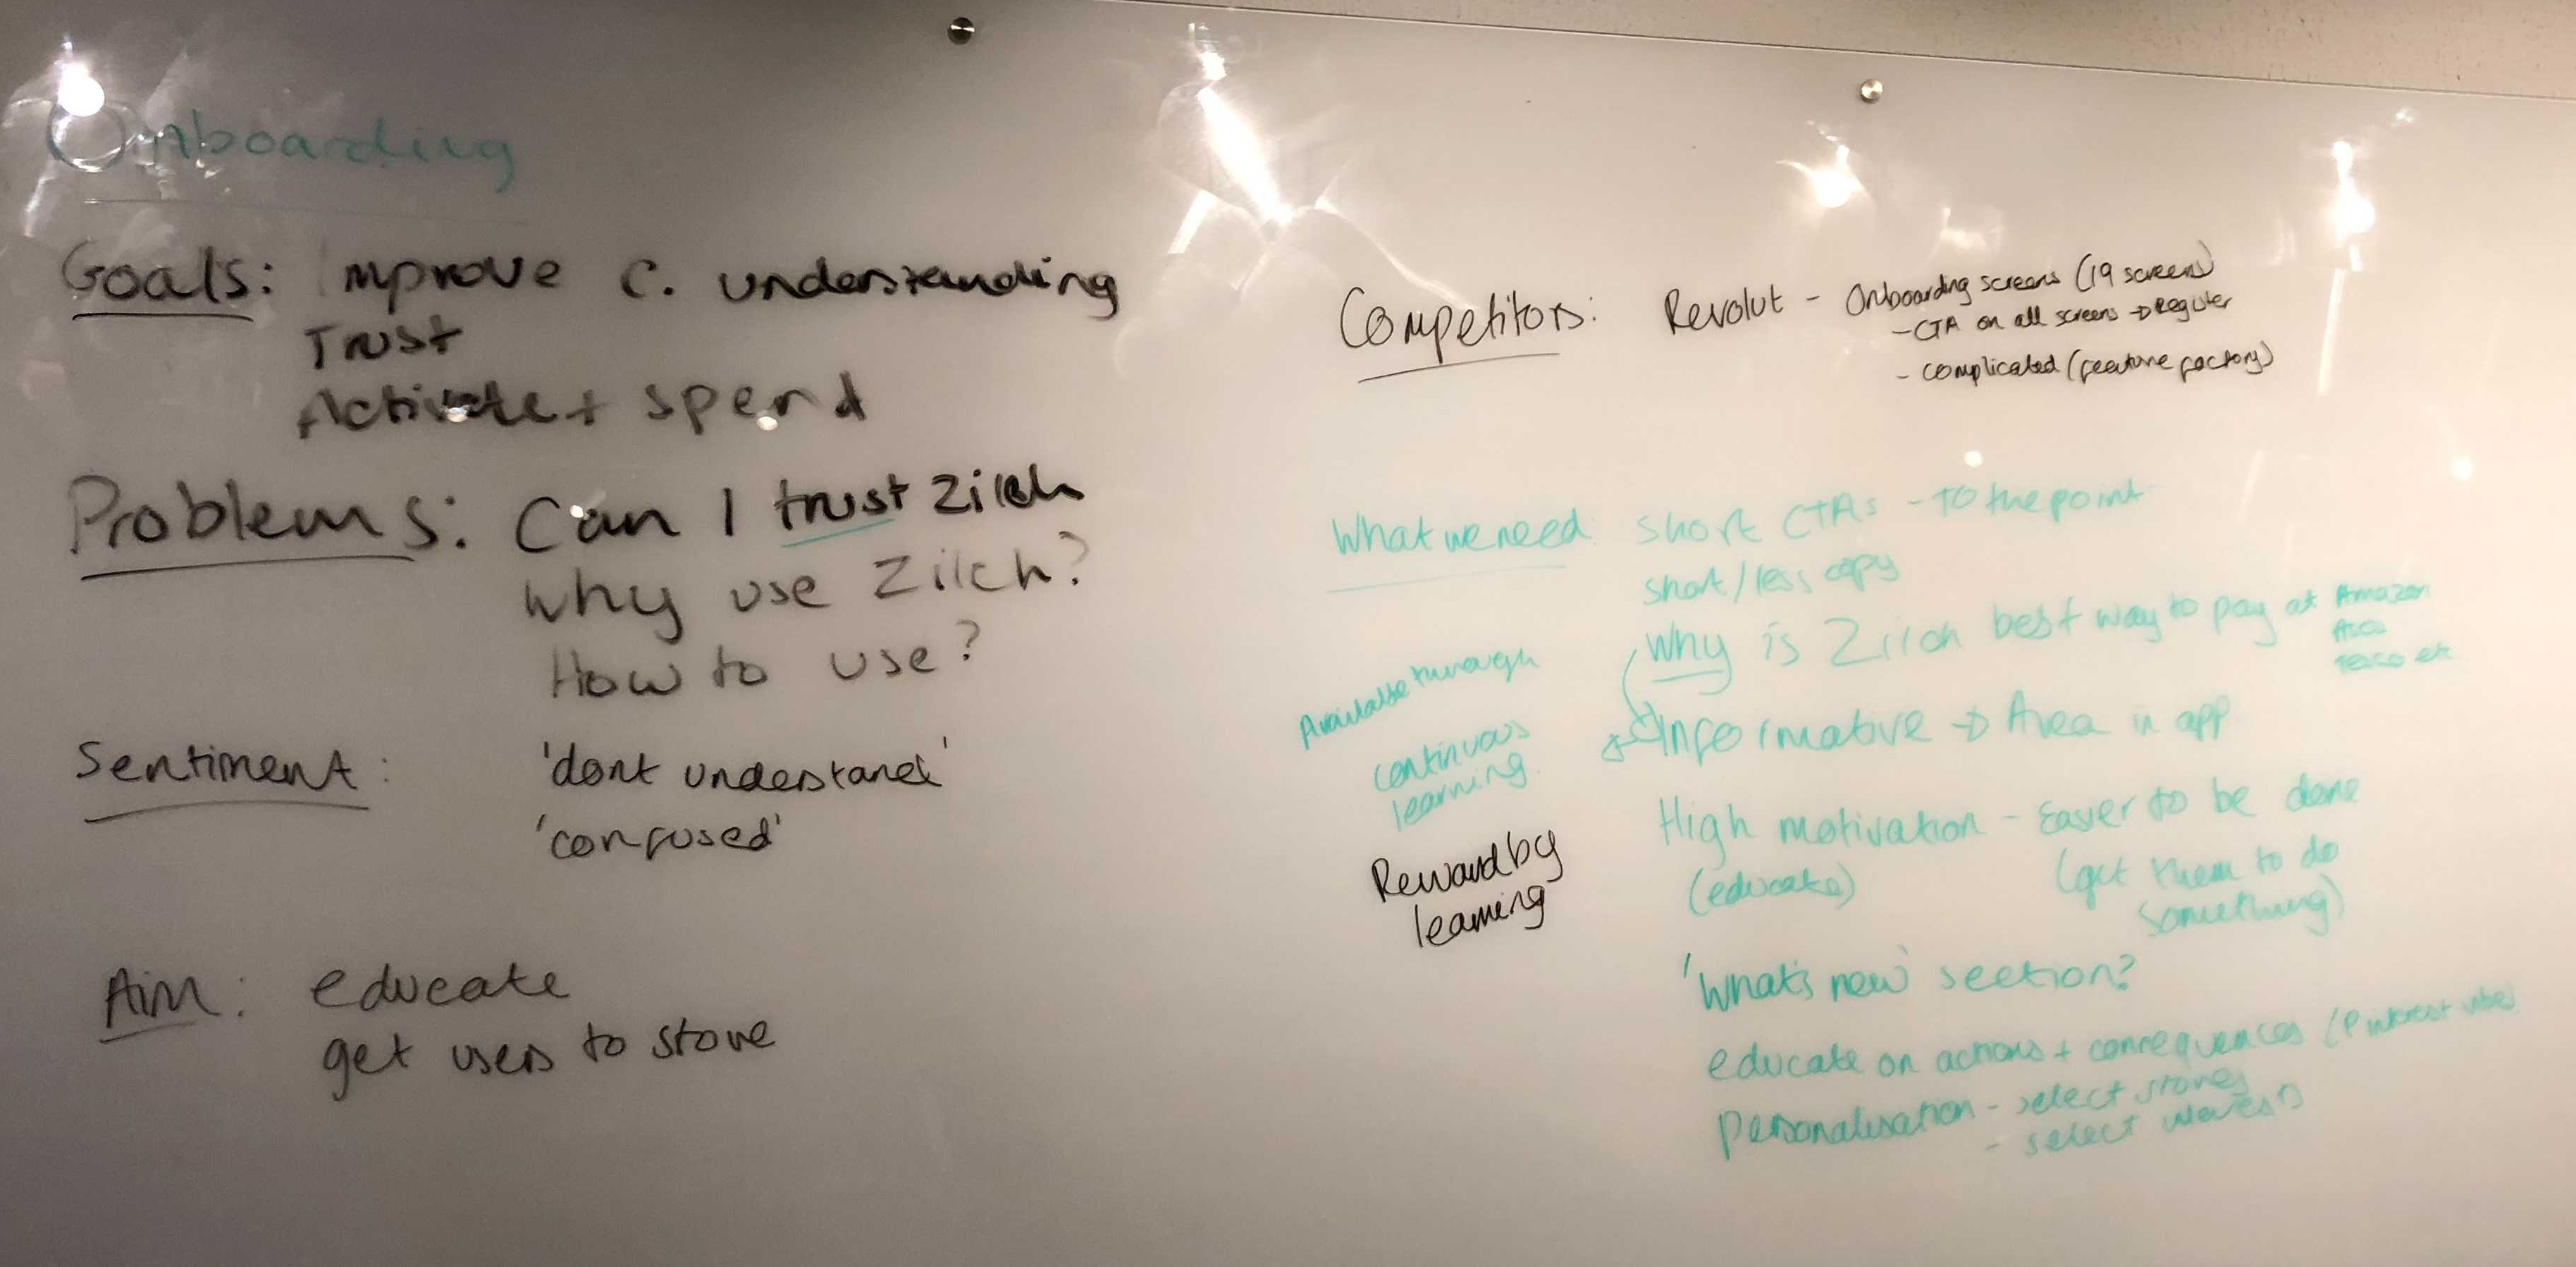 Onboarding
Goals: Improve C. understanding
Trust
Activate + spend
Problems: Can I trust Zilch
Why use Zilch?
How to use?
Sentiment: 'dont understand'
'confused'
Aim: educate
get users to store
Competitors: Revolut - Onboarding screens (19 screens)
- CTA on all screens → Register
- complicated (feature factory)
What we need short CTAs - To the point
short/less copy
Why is Zilch best way to pay at Amazon
Tesco etc
Informative → Area in app
Available through
continuous
learning
Reward by
learning
High motivation - Easier to be done
(educate) (get them to do
something)
'What's new' section?
educate on actions + consequences (Pinterest vibe)
Personalisation - select stores
- select interests